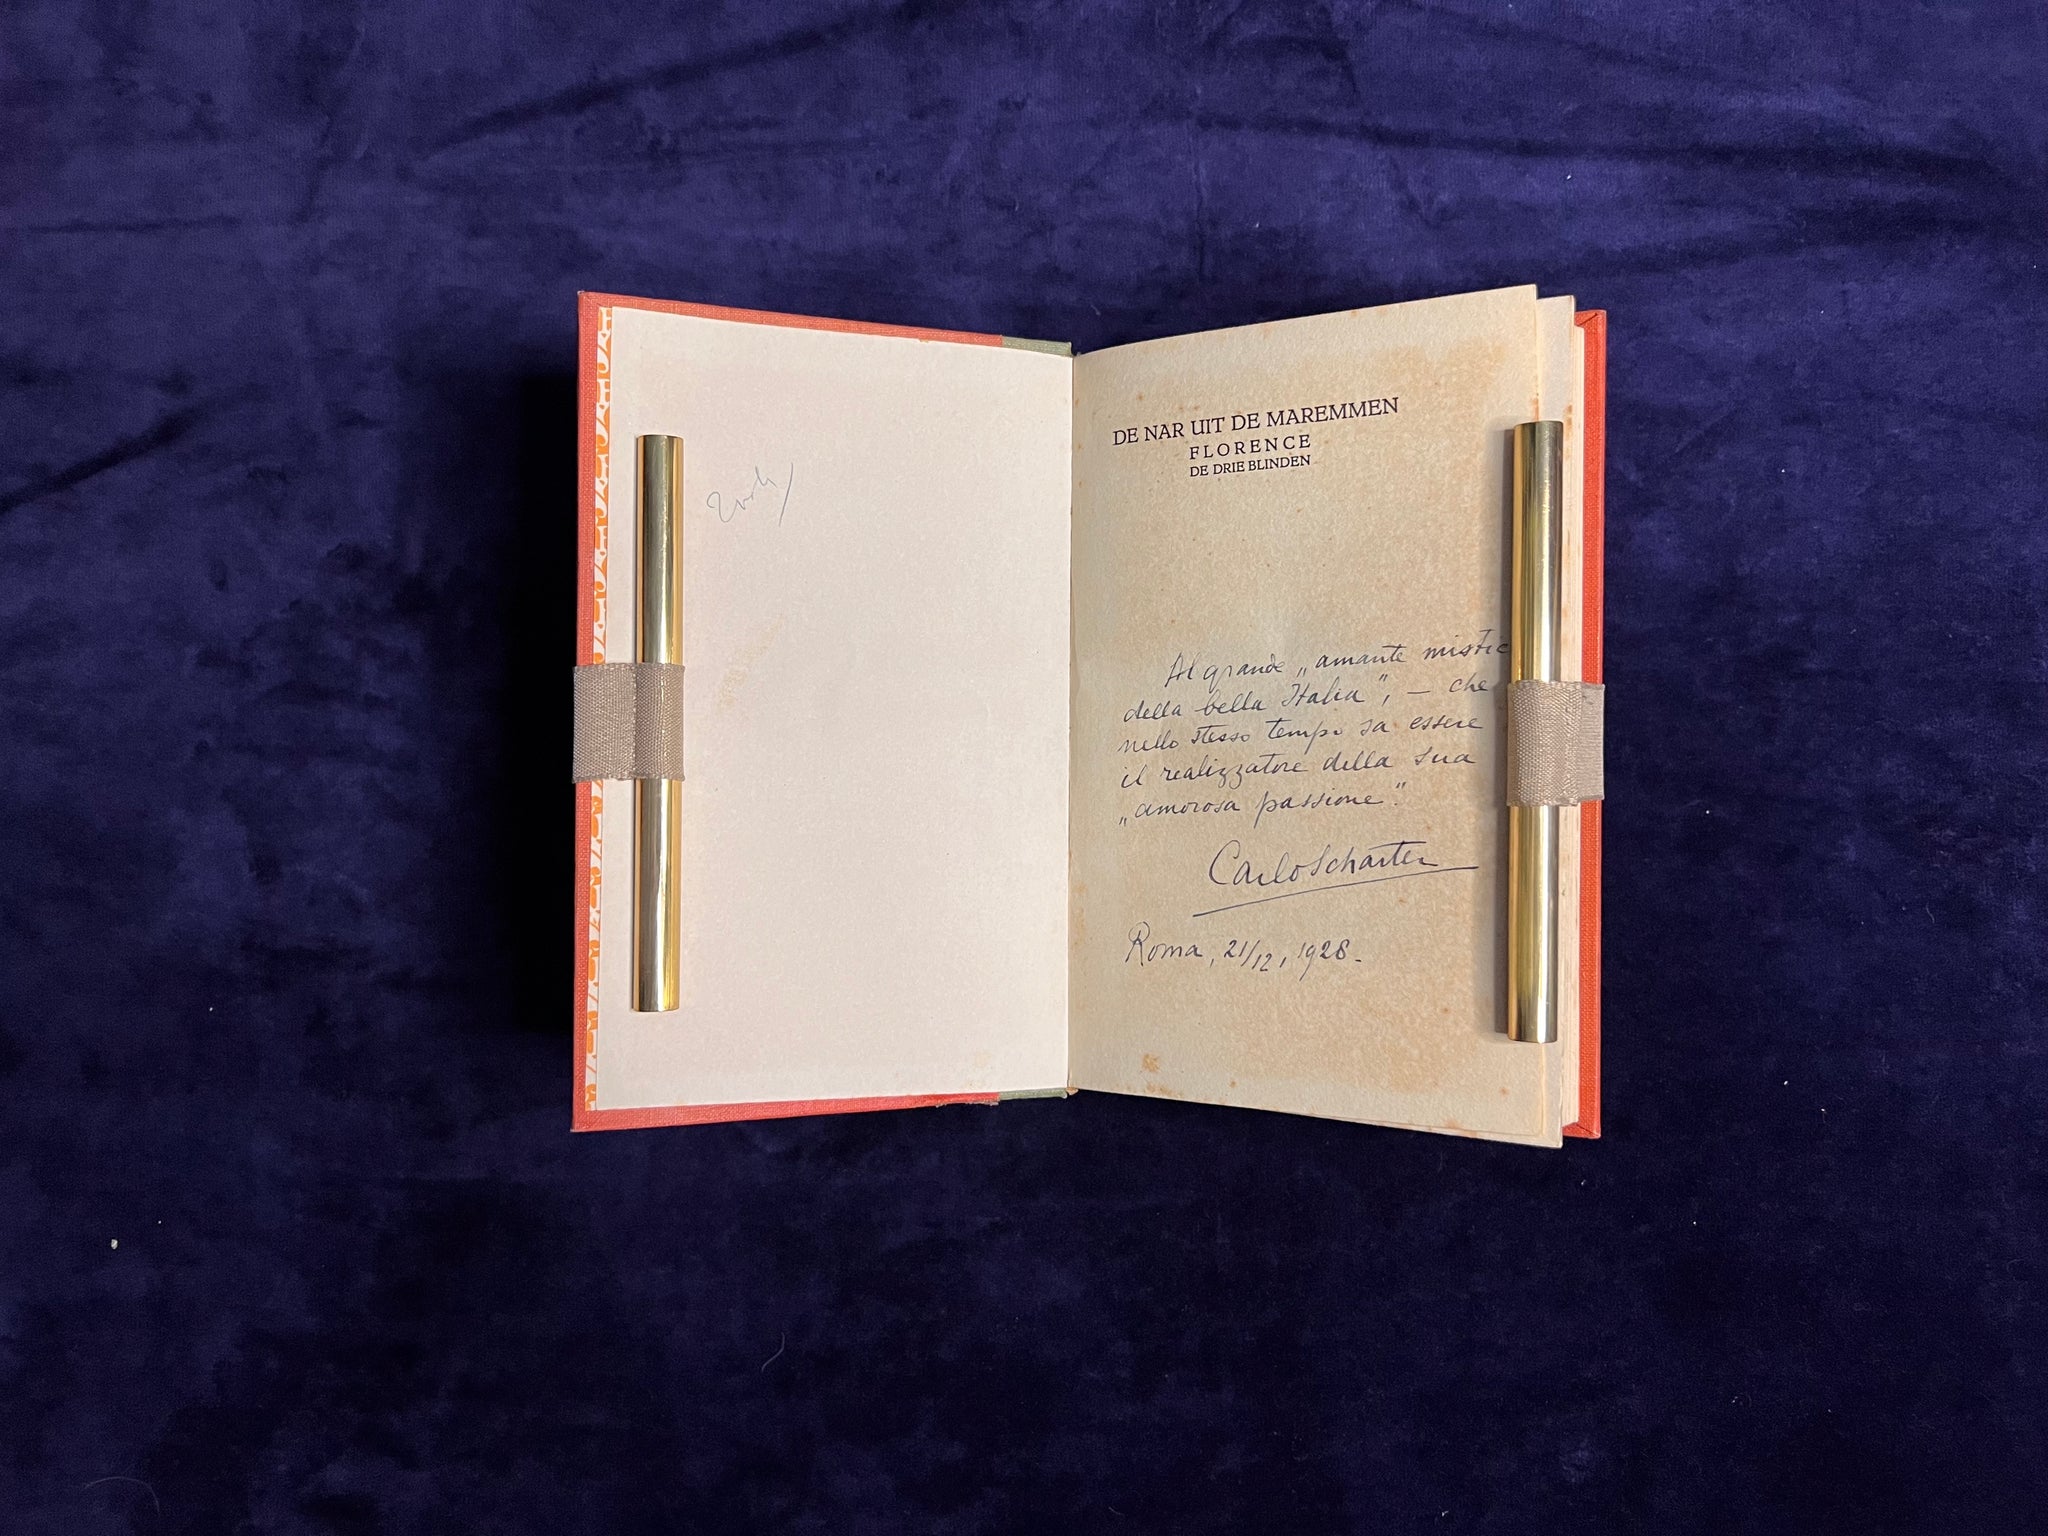 DE NAR UIT DE MAREMMEN
FLORENCE
DE DRIE BLINDEN
Al grande „amante mistic
della bella Italia", — che
nello stesso tempo sa essere
il realizzatore della sua
„amorosa passione".
Carlo Scharten
Roma, 21/12, 1928.